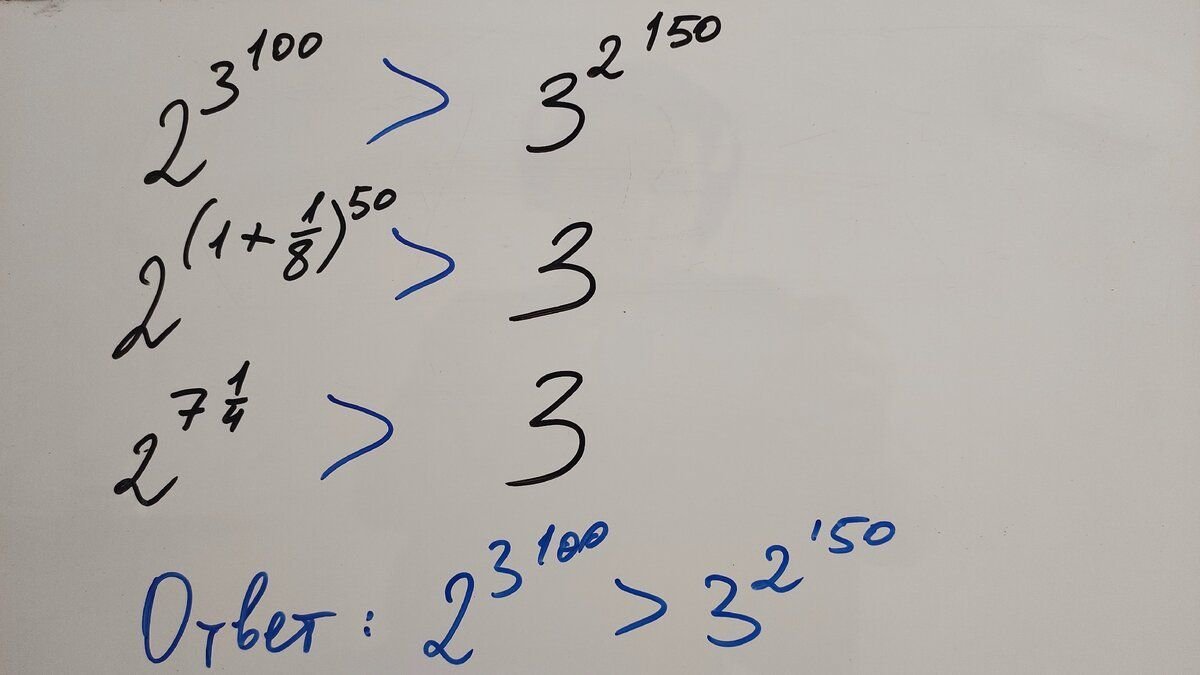 2^{3^{100}} > 3^{2^{150}}
2^{(1+\frac{1}{8})^{50}} > 3
2^{7\frac{1}{4}} > 3
Ответ: 2^{3^{100}} > 3^{2^{150}}